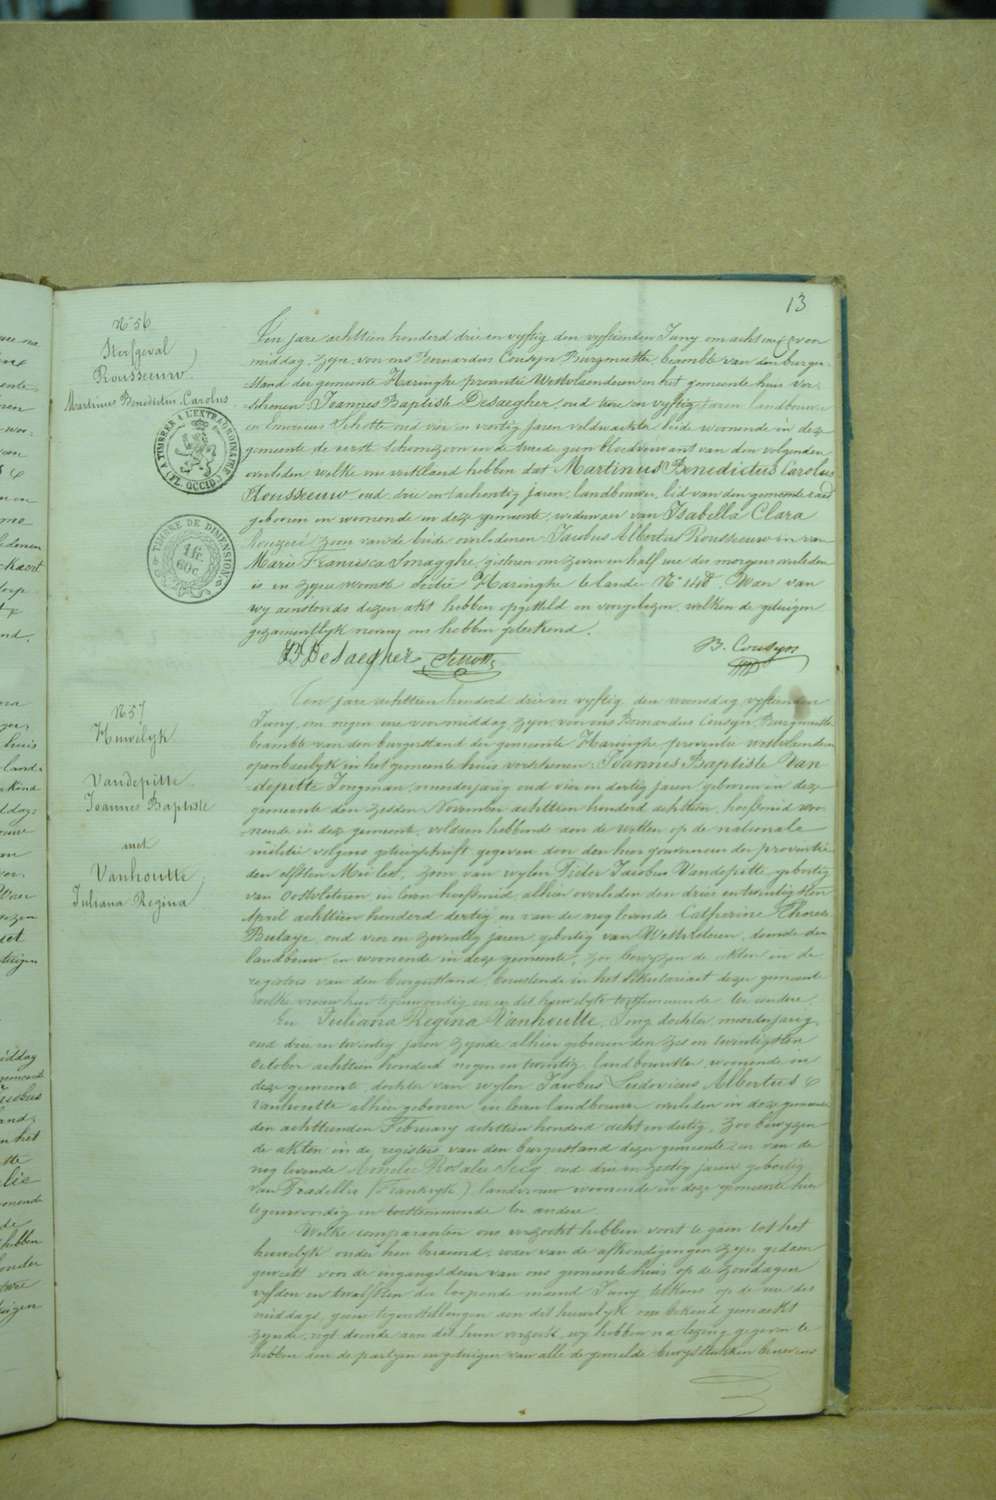 13
N° 56
Sterfgeval
Rousseeuw
Martinus Benedictus Carolus
A TIMBRER A L'EXTRAORDINAIRE
(FL. OCCID.)
TIMBRE DE DIMENSION
1 fr.
60 c.
Ten jare achttien honderd drie en vyftig den vyftienden Juny om acht ure voor
middag, zyn voor ons Bernardus Cousyn Burgmeester beambte van den burger
stand der gemeente Haringhe provintie Westvlaenderen in het gemeente huis ver-
schenen Joannes Baptiste Desaegher, oud drie en vyftig jaren landbouwer
en Schotte oud vier en veertig jaren veldwachter beide woonende in deze
gemeente de eerste schoonzoon en de tweede geen bloedverwant van den volgenden
overleden welke ons verklaerd hebben dat Martinus Benedictus Carolus
Rousseeuw oud drie en tachentig jaren, landbouwer, lid van den gemeente raed
geboren en woonende in deze gemeente, weduwaer van Isabella Clara
zoon van de beide overledenen Jacobus Albertus Rousseeuw en van
Marie Francisca Smagghe, gisteren om zeven en half ure des morgens overleden
is in zyne woonste sectie Haringhe te lande N° 148. Waer van
wy aenstonds dezen akt hebben opgesteld en voorgelezen, welken de getuigen
gezamentlyk nevens ons hebben geteekend.
JB DeSaegher Schotte B. Cousyn
N° 57
Huwelyk
Vandepitte
Joannes Baptiste
met
Vanhoutte
Juliana Regina
Ten jare achttien honderd drie en vyftig den woensdag vyftienden
Juny, om negen ure voormiddag, zyn voor ons Bernardus Cousyn Burgmeester
beambte van den burgerstand der gemeente Haringhe provintie westvlaenderen
openbaerlyk in het gemeente huis verschenen Joannes Baptiste Van
depitte Jongman, meerderjarig oud vier en dertig jaren geboren in deze
gemeente den zesden November achttien honderd achttien, hoefsmid woo-
nende in deze gemeente, voldaen hebbende aen de wetten op de nationale
militie volgens getuigschrift gegeven door den heer gouverneur der provintie
den elfsten Mei lest, zoon van wylen Pieter Jacobus Vandepitte geboortig
van Oostvleteren in leven hoefsmid alhier overleden den drie en twintigsten
April achttien honderd dertig en van de nog levende Catherine Therese
Butaye, oud vier en zeventig jaren geboortig van Westvleteren, doende den
landbouw en woonende in deze gemeente, zoo bewyzen de akten in de
registers van den burgerstand, berustende in het Sekretariaet dezer gemeente
welke vrouw hier tegenwoordig en in dit huwelyk toestemmende ter eendere.
En Juliana Regina Vanhoutte, Jong dochter, meerderjarig
oud drie en twintig jaren zynde alhier geboren den zes en twintigsten
October achttien honderd negen en twintig, landbouwster, woonende in
deze gemeente, dochter van wylen Jacobus Ludovicus Albertus
Vanhoutte alhier geboren in leven landbouwer overleden in deze gemeente
den achttienden February achttien honderd acht en dertig, zoo bewyzen
de akten in de registers van den burgerstand dezer gemeente en van de
nog levende Rosalie oud drie en zestig jaren geboortig
van (Frankryk) landvrouw woonende in deze gemeente hier
tegenwoordig en toestemmende ter andere.
Welke comparanten ons verzocht hebben voort te gaen tot het
huwelyk onder hen beraemd, waer van de afkondigingen zyn gedaen
geweest voor de ingangdeur van ons gemeente huis op de zondagen
vyfden en twaelfsten der loopende maend Juny telkens op de ure des
middags, geene tegenstellingen aen dit huwelyk ons bekend gemaekt
zynde, regt doende aen dit hun verzoek, wy hebben na lezing gegeven te
hebben aen de partyen en getuigen van alle de gemelde bewysstukken benevens